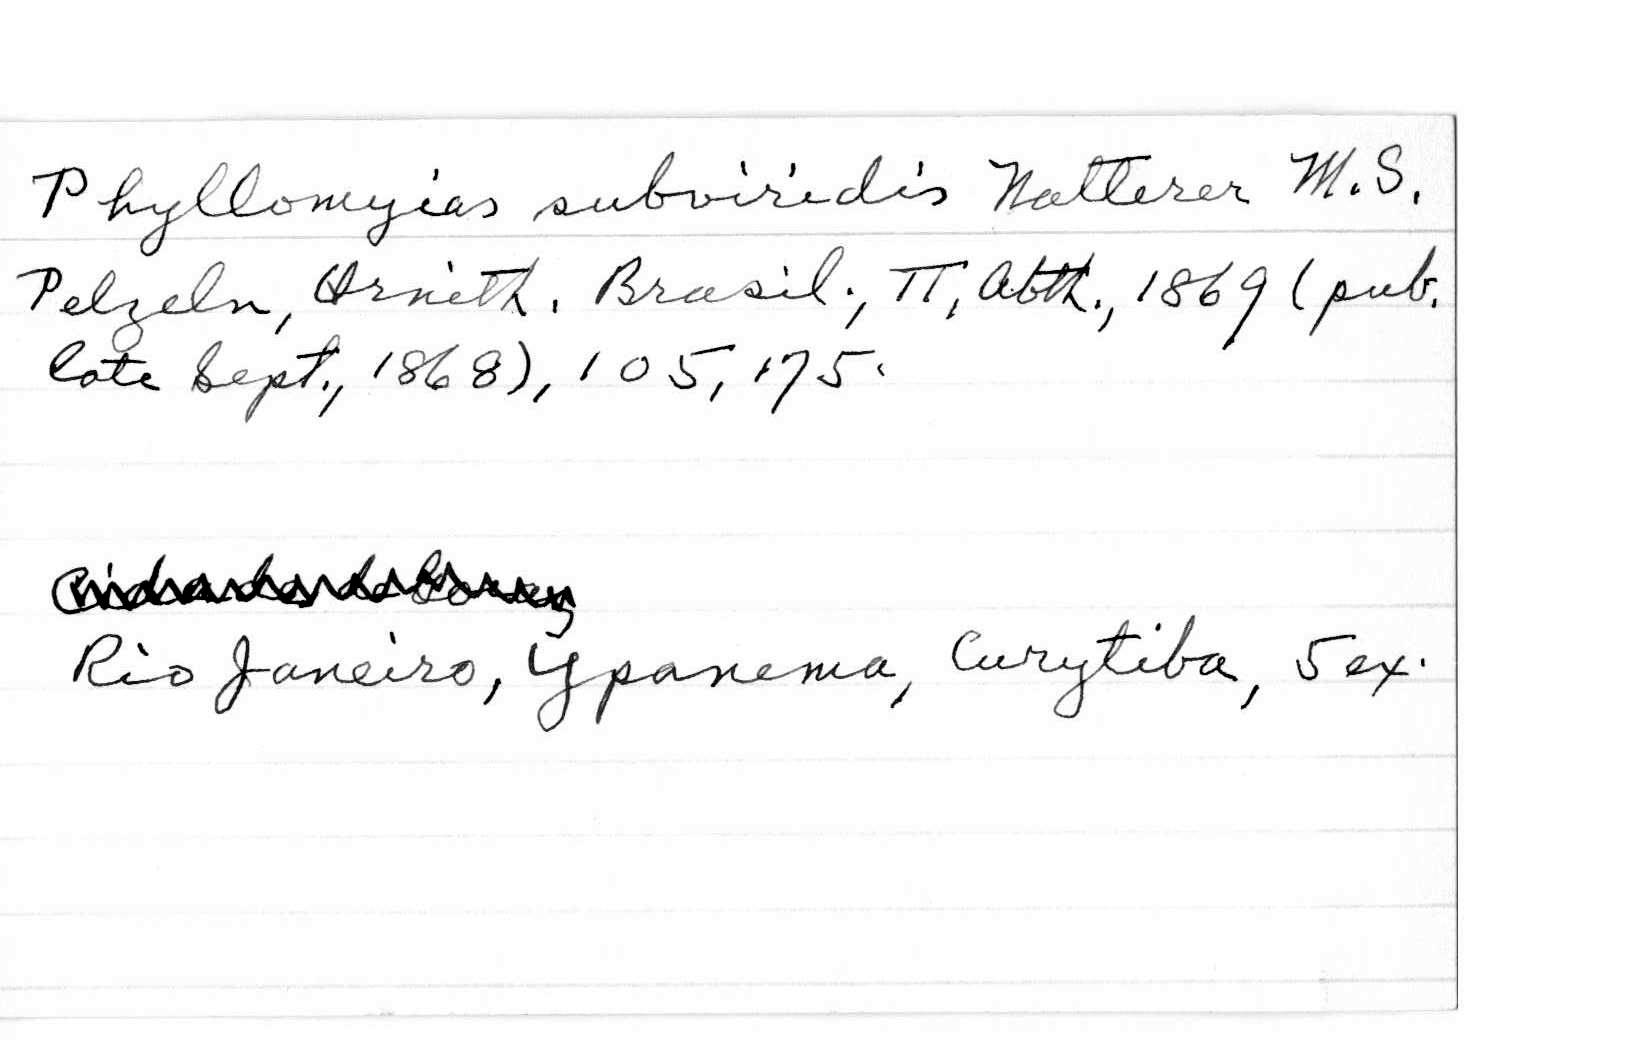 Phyllomyias subviridis Natterer M.S.
Pelzeln, Ornith. Brasil., II, Abth., 1869 (pub.
late Sept., 1868), 105, 175.
Rio Janeiro, Ypanema, Curytiba, 5 ex.